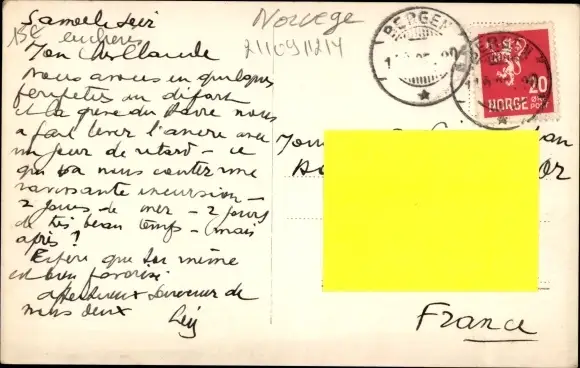 Samedi soir
15€ enchères
Mon cher Claude
Nous avons eu quelques
péripéties au départ
et la grève du Havre nous
a fait lever l'ancre avec
un jour de retard - ce
qui va nous couter une
ravissante excursion -
2 jours de mer - 2 jours
de très beau temps - (mais
après ?
Espère que toi même
est bien favorisé
affectueux souvenir de
nous deux
Norvège
2110911214
BERGEN
BERGEN
20
NORGE
ØRE
POST
France